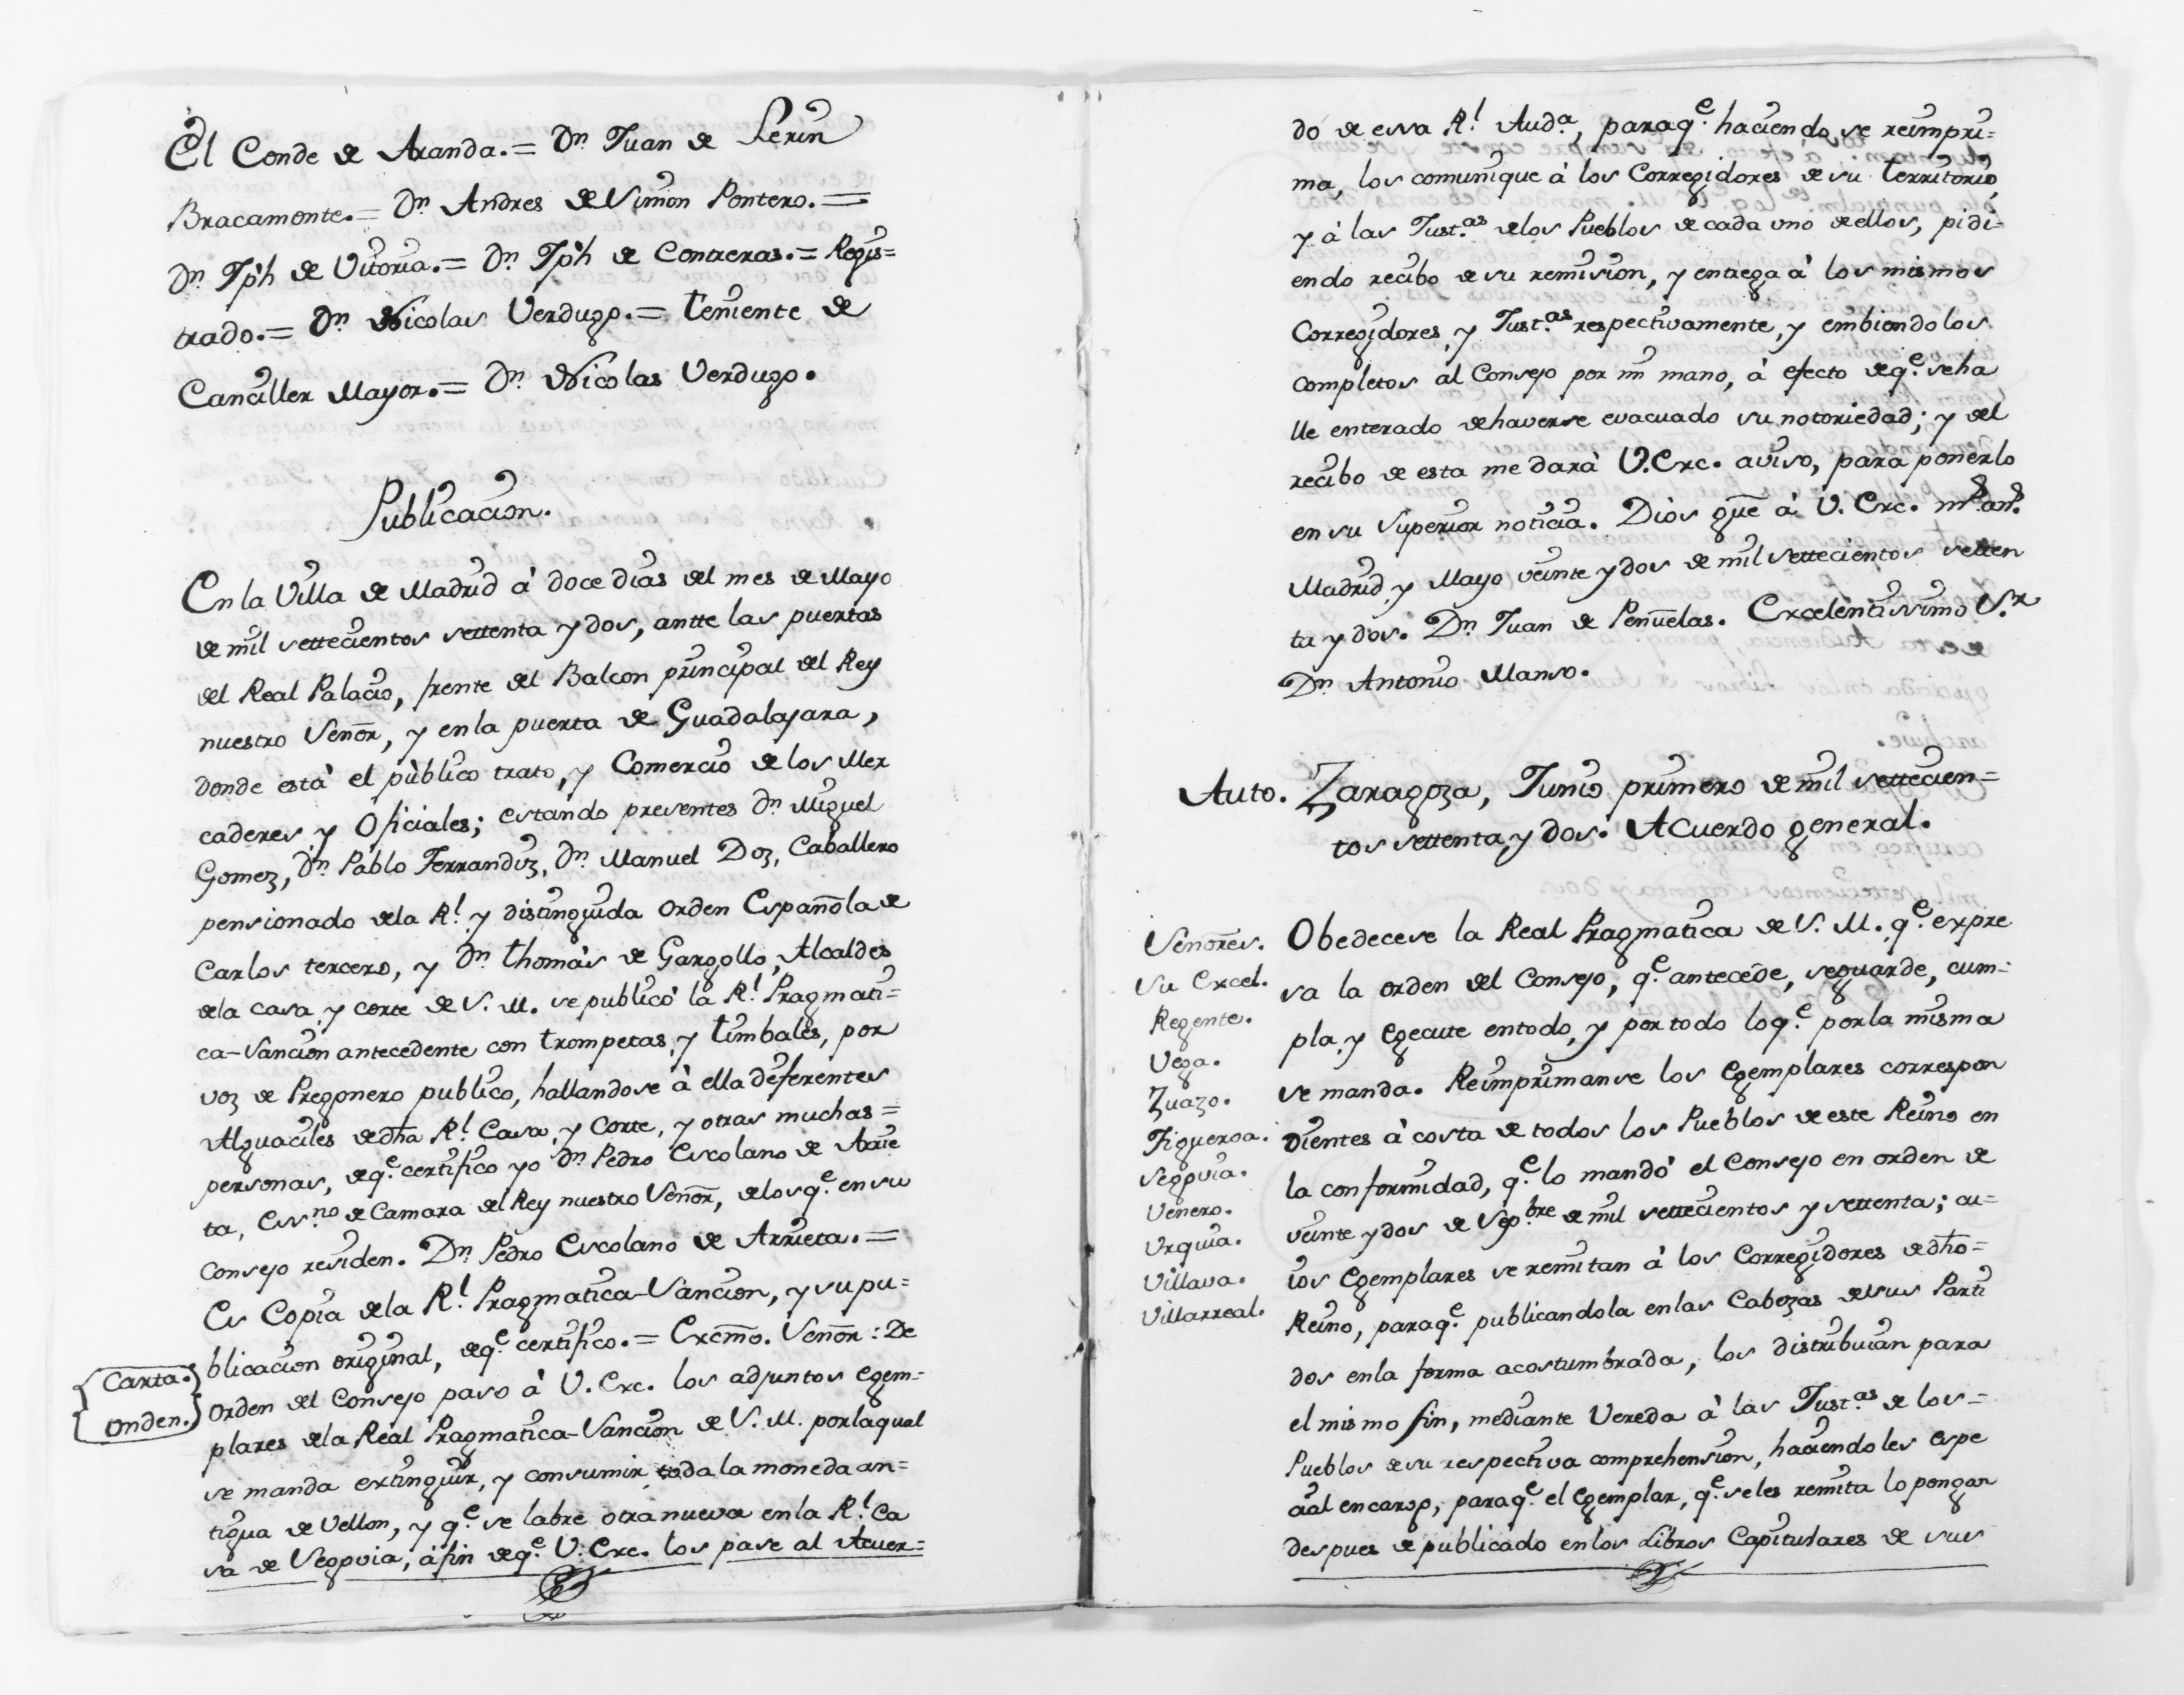 El Conde de Aranda.= Dn. Juan de Lerin
Bracamonte.= Dn. Andres de Simon Pontero.=
Dn. Jph de Vitoria.= Dn. Jph de Contreras.= Regis=
trado.= Dn. Nicolas Verdugo.= Teniente de
Canciller Mayor.= Dn. Nicolas Verdugo.
Publicacion.
En la Villa de Madrid à doce dias del mes de Mayo
de mil settecientos settenta y dos, antte las puertas
del Real Palacio, frente del Balcon principal del Rey
nuestro Señor, y en la puerta de Guadalajara,
donde està el pùblico trato, y Comercio de los Mer
caderes, y Oficiales; estando presentes Dn. Miguel
Gomez, Dn. Pablo Ferrandiz, Dn. Manuel Doz, Caballero
pensionado dela Rl. y distinguida Orden Española de
Carlos tercero, y Dn. Thomàs de Gargollo, Alcaldes
dela casa, y corte de S. M. se publicò la Rl. Pragmati=
ca-Sancion antecedente con trompetas, y timbales, por
voz de Pregonero publico, hallandose à ella deferentes
Alguaciles de dha Rl. Casa, y Corte, y otras muchas=
personas, deqe. certifico yo Dn. Pedro Escolano de Arrie
ta, Essno. de Camara del Rey nuestro Señor, delos qe. en su
Consejo residen. Dn. Pedro Escolano de Arrieta.=
Es Copia dela Rl. Pragmatica-Sancion, y su pu=
blicacion original, deqe. certifico.= Excmo. Señor: De
Carta-
Orden.
orden del Consejo paso à V. Exc. los adjuntos egem=
plares dela Real Pragmatica-Sancion de S. M. por la qual
se manda extinguir, y consumir toda la moneda an=
tigua de Vellon, y qe. se labre otra nueva en la Rl. Ca
sa de Segovia, à fin deqe. V. Exc. los pase al Acuer=
do de essa Rl. Auda., paraqe. haciendo se reimpri=
ma, los comunique à los Corregidores de su territorio,
y à las Justas. delos Pueblos de cada uno de ellos, pidi=
endo recibo de su remision, y entrega à los mismos
Corregidores, y Justas. respectivamente, y embiandolos
completos al Consejo por mi mano, à efecto deqe. se ha
lle enterado de haverse evacuado su notoriedad; y del
recibo de esta me darà V. Exc. aviso, para ponerlo
en su Superior noticia. Diòs gue. à V. Exc. ms. as.
Madrid, y Mayo veinte y dos de mil settecientos setten
ta y dos. Dn. Juan de Peñuelas. Excelentissimo Sr.
Dn. Antonio Manso.
Auto. Zaragoza, Junio primero de mil settecien=
tos settenta, y dos. Acuerdo general.
Señores.
Su Excel.
Regente.
Vega.
Zuazo.
Figueroa.
Segovia.
Venero.
Urquia.
Villava.
Villarreal.
Obedecese la Real Pragmatica de S. M. qe. expre
sa la orden del Consejo, qe. antecede, se guarde, cum=
pla, y egecute entodo, y por todo lo qe. por la misma
se manda. Reimprimanse los Egemplares correspon
dientes à costa de todos los Pueblos de este Reino en
la conformidad, qe. lo mandò el Consejo en orden de
veinte y dos de Sepbre. de mil settecientos y settenta; cu=
ios Egemplares se remitan à los Corregidores de dho=
Reino, paraqe. publicandola en las Cabezas de sus Parti
dos en la forma acostumbrada, los distribuian para
el mismo fin, mediante Vereda à las Justas. de los=
Pueblos de su respectiva comprehension, haciendoles espe
cial encargo, paraqe. el Egemplar, qe. se les remita lo pongan
despues de publicado en los Libros Capitulares de sus